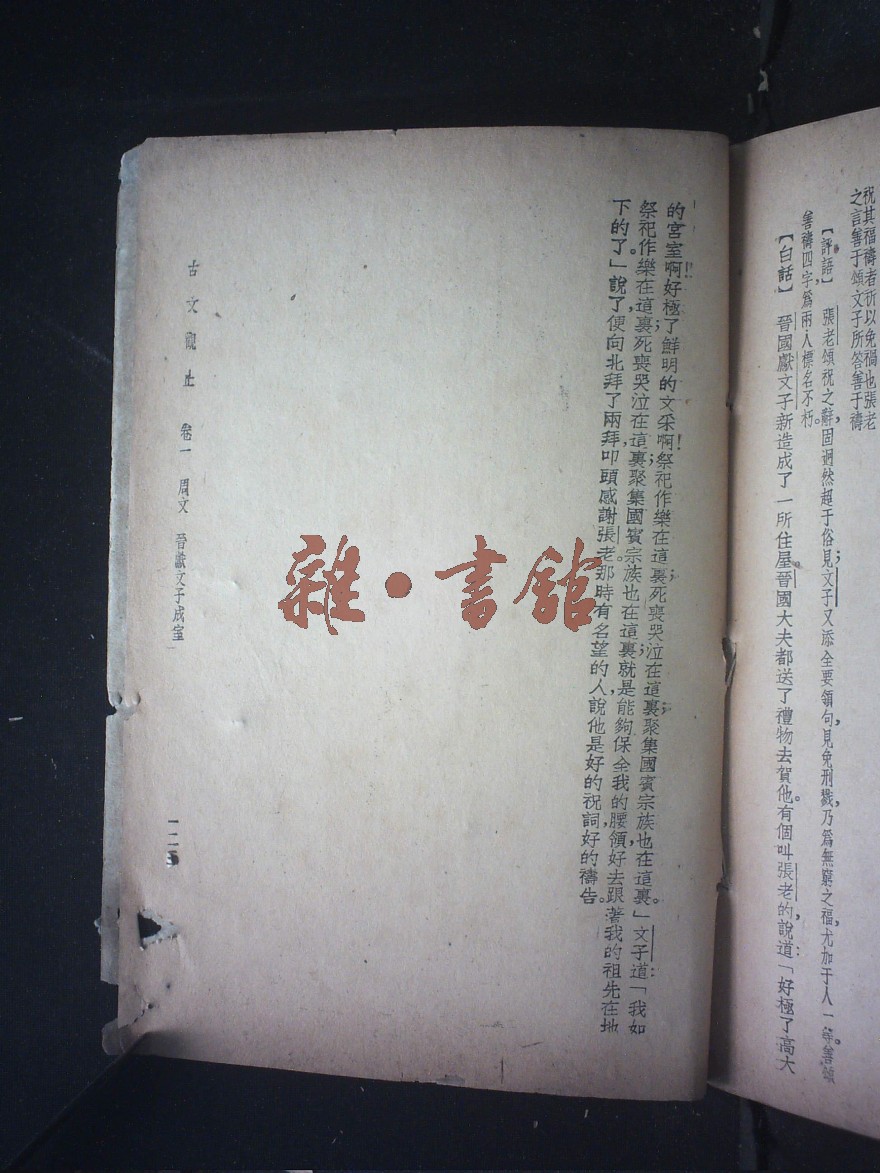 祝其福禱者祈以免禍也張老
之言善于頌文子所答善于禱
【評語】張老頌祝之辭，固迥然超于俗見；文子又添全要領句，見免刑戮，乃爲無窮之福，尤加于人一等。善頌
善禱四字，爲兩人標名不朽。
【白話】晉國獻文子新造成了一所住屋，晉國大夫都送了禮物去賀他。有個叫張老的，說道：「好極了高大
的宮室啊！好極了鮮明的文采啊！祭祀作樂在這裏；死喪哭泣在這裏；聚集國賓宗族也在這裏。」文子道：「我如
祭祀作樂在這裏；死喪哭泣在這裏；聚集國賓宗族也在這裏；就是能夠保全我的腰領，好去跟著我的祖先在地
下的了。」說了，便向北拜了兩拜，叩頭感謝張老。那時有名望的人，說他是好的祝詞，好的禱告。
古文觀止 卷一 周文 晉獻文子成室
雜·書館